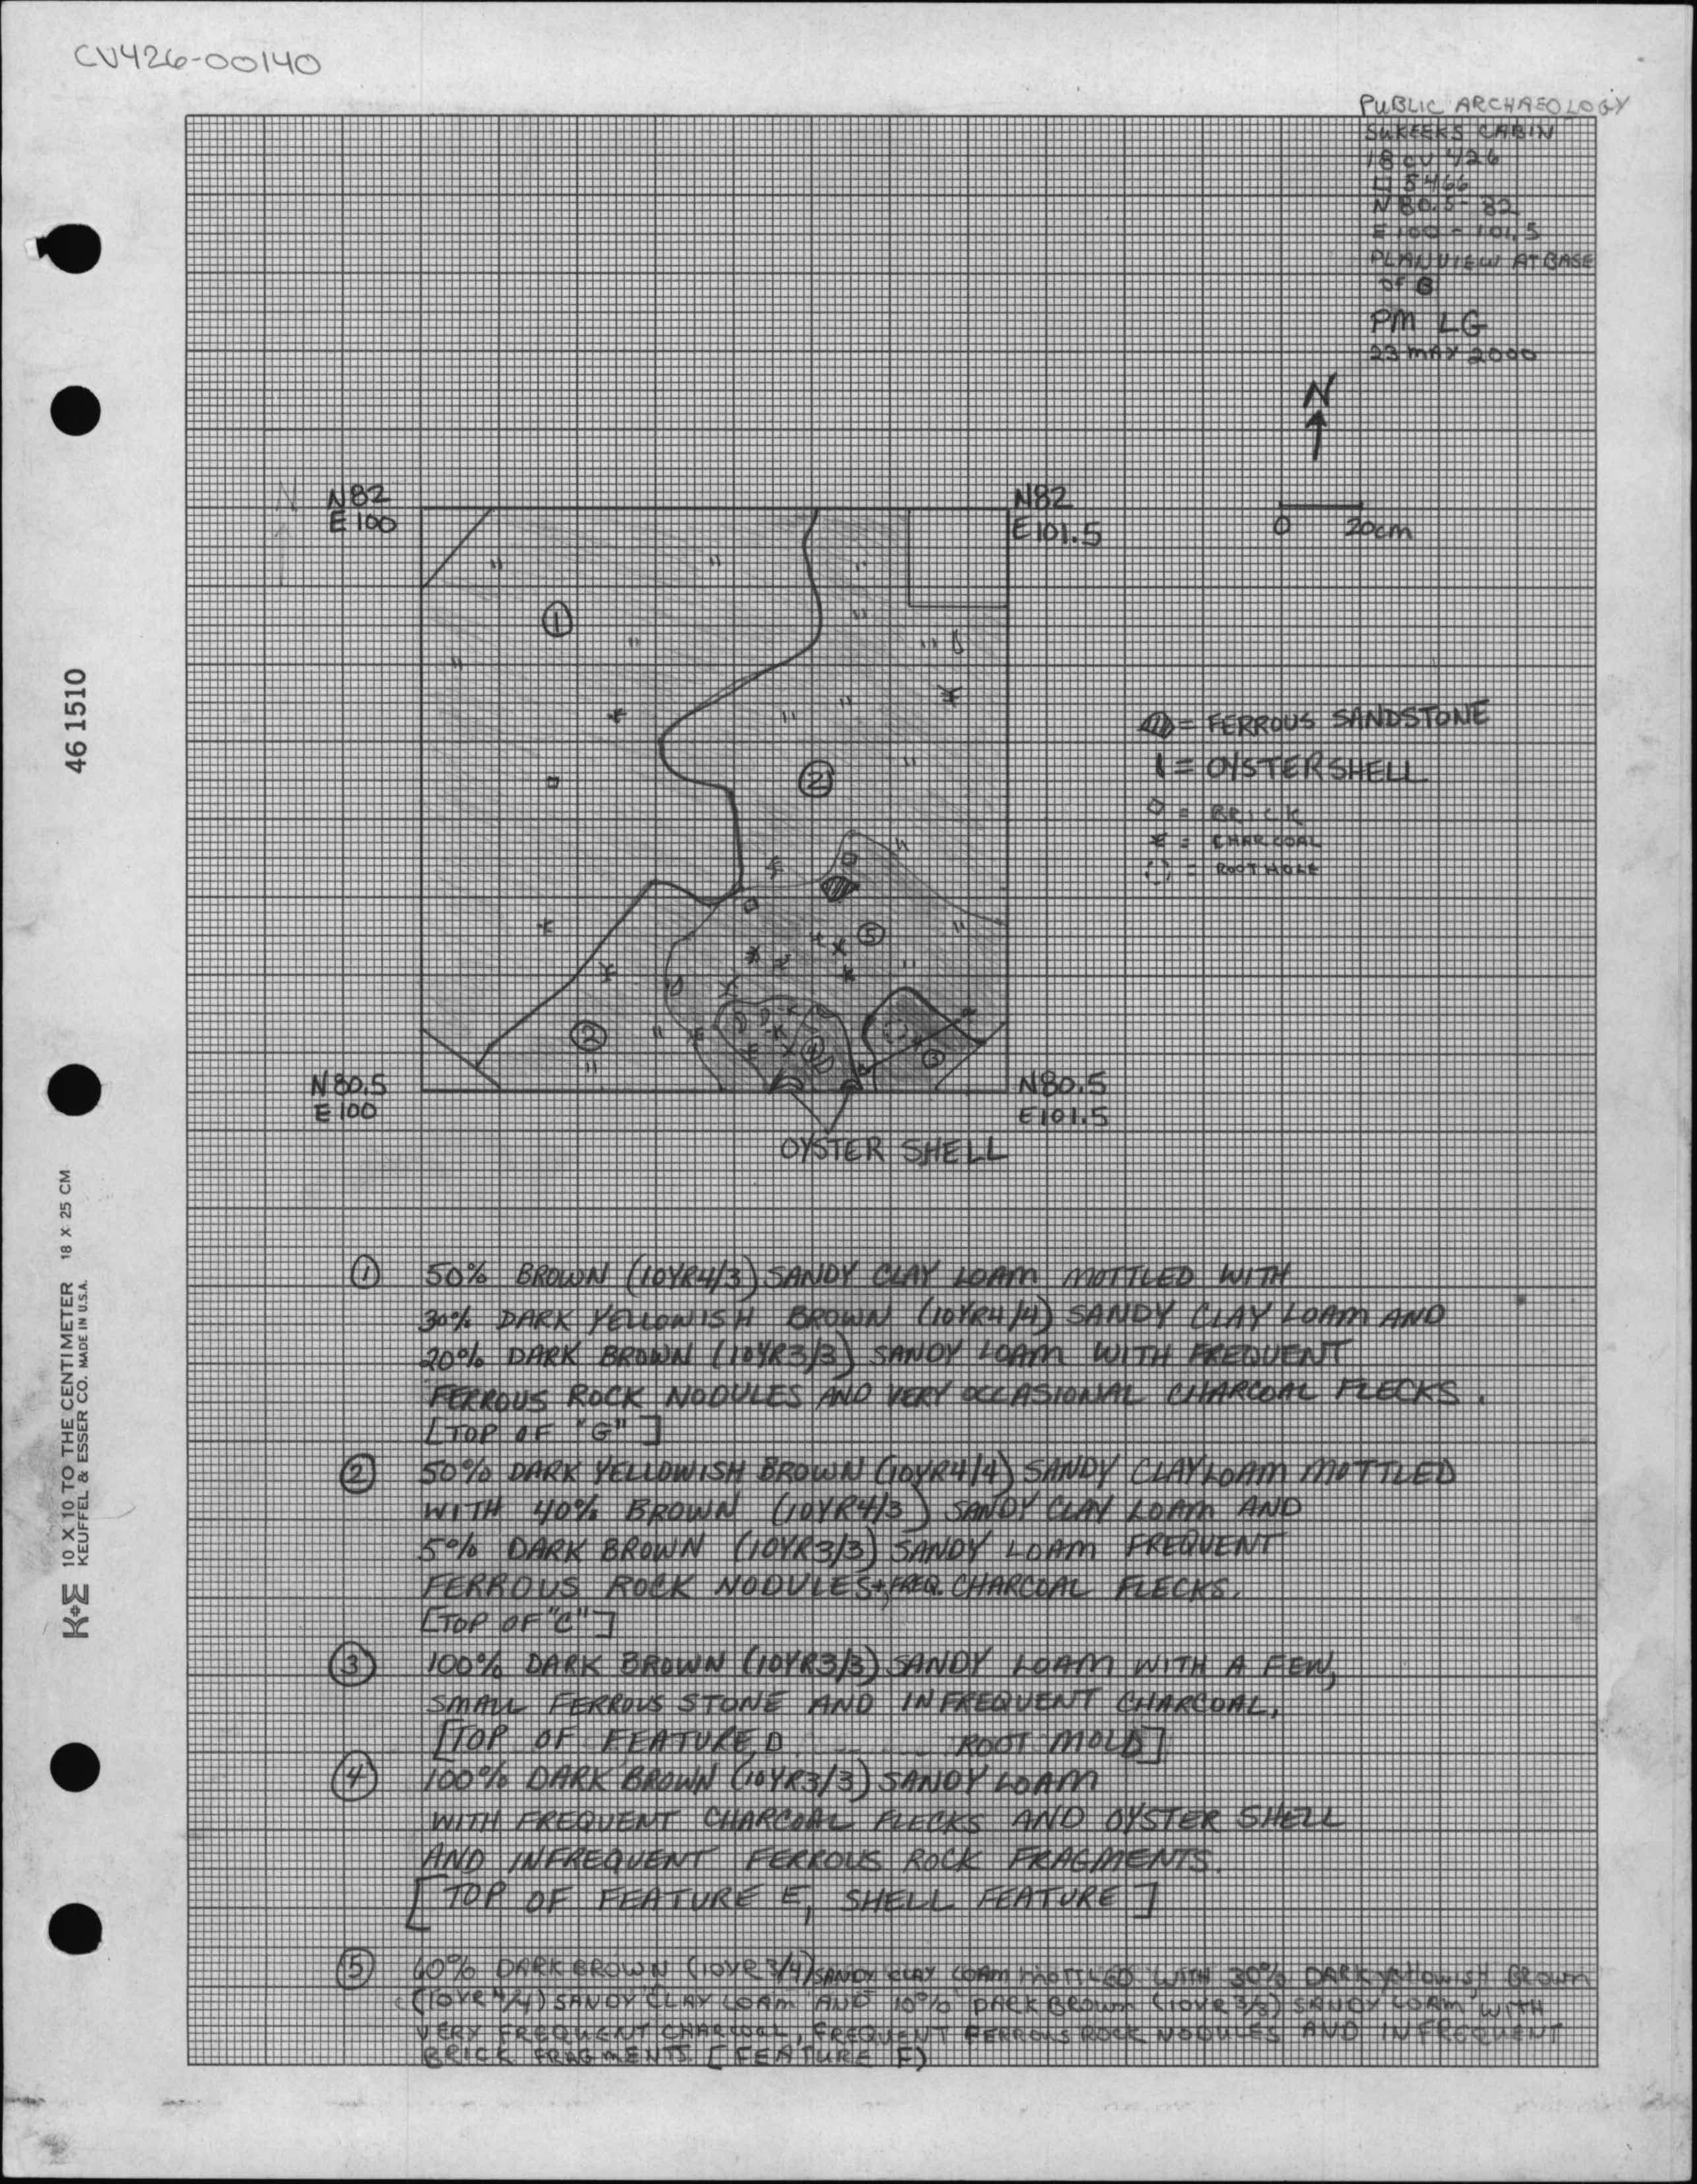 CV426-00140
PUBLIC ARCHAEOLOGY
SUKEEKS CABIN
18 CV 426
5466
N 80.5 - 82
E 100 - 101.5
PLANVIEW AT BASE
OF B
PM LG
23 MAY 2000
N
N
0 20cm
N82
E100
N82
E101.5
1
2
5
2
4
3
= FERROUS SANDSTONE
= OYSTER SHELL
= BRICK
= CHARCOAL
= ROOT HOLE
N80.5
E100
N80.5
E101.5
OYSTER SHELL
1 50% BROWN (10YR4/3) SANDY CLAY LOAM MOTTLED WITH
30% DARK YELLOWISH BROWN (10YR4/4) SANDY CLAY LOAM AND
20% DARK BROWN (10YR3/3) SANDY LOAM WITH FREQUENT
FERROUS ROCK NODULES AND VERY OCCASIONAL CHARCOAL FLECKS.
[TOP OF "G"]
2 50% DARK YELLOWISH BROWN (10YR4/4) SANDY CLAY LOAM MOTTLED
WITH 40% BROWN (10YR4/3) SANDY CLAY LOAM AND
5% DARK BROWN (10YR3/3) SANDY LOAM FREQUENT
FERROUS ROCK NODULES + FREQ. CHARCOAL FLECKS.
[TOP OF "C"]
3 100% DARK BROWN (10YR3/3) SANDY LOAM WITH A FEW,
SMALL FERROUS STONE AND INFREQUENT CHARCOAL.
[TOP OF FEATURE, D ROOT MOLD]
4 100% DARK BROWN (10YR3/3) SANDY LOAM
WITH FREQUENT CHARCOAL FLECKS AND OYSTER SHELL
AND INFREQUENT FERROUS ROCK FRAGMENTS.
[TOP OF FEATURE E, SHELL FEATURE]
5 60% DARK BROWN (10YR 3/4) SANDY CLAY LOAM MOTTLED WITH 30% DARK YELLOWISH BROWN
(10YR 4/4) SANDY CLAY LOAM AND 10% DARK BROWN (10YR 3/3) SANDY LOAM WITH
VERY FREQUENT CHARCOAL, FREQUENT FERROUS ROCK NODULES AND INFREQUENT
BRICK FRAGMENTS. [FEATURE F)
46 1510
K+E 10 X 10 TO THE CENTIMETER 18 X 25 CM
KEUFFEL & ESSER CO. MADE IN U.S.A.